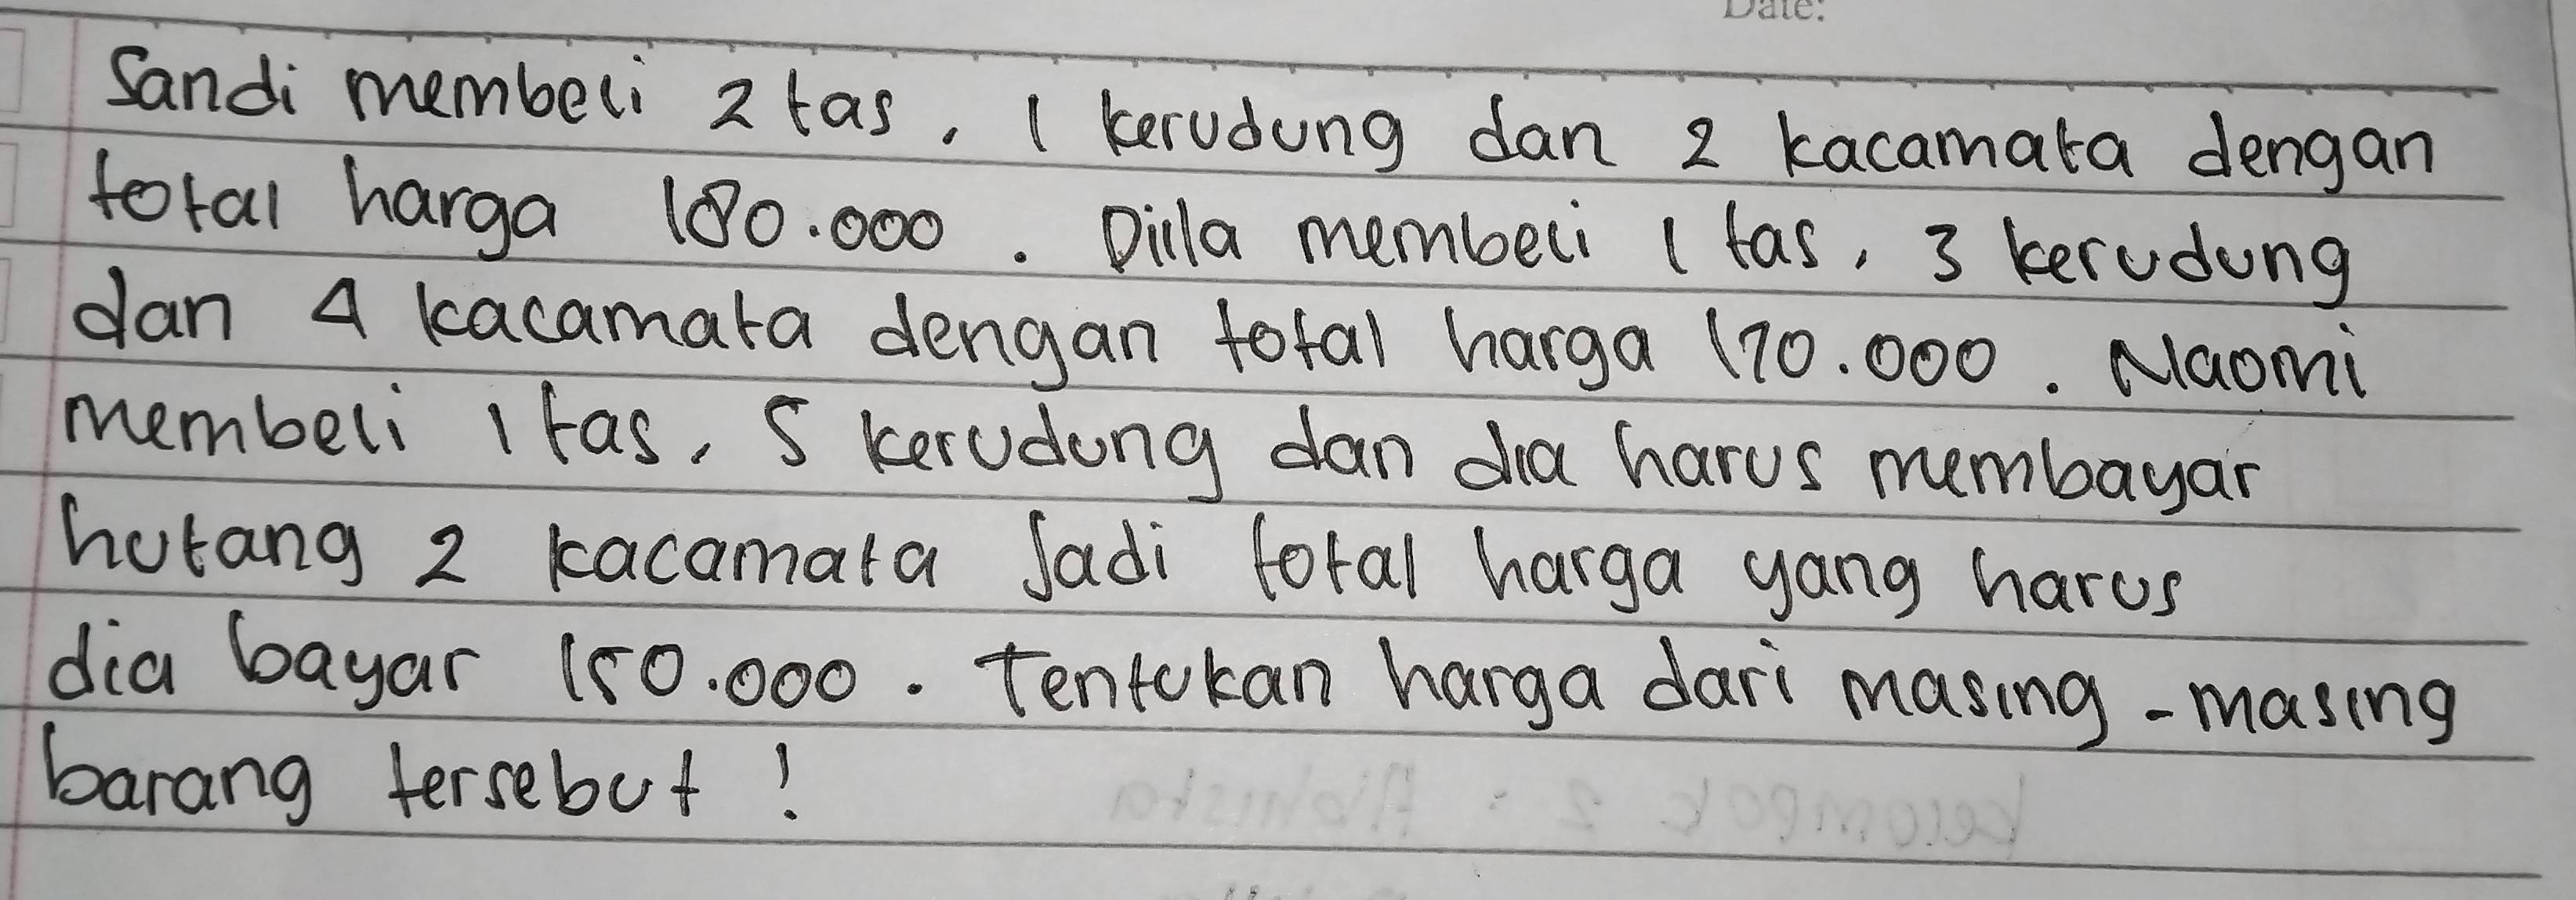 Date:
Sandi membeli 2 tas, 1 kerudung dan 2 kacamata dengan
total harga 180.000. Diila membeli 1 tas, 3 kerudung
dan 4 kacamata dengan total harga 170.000. Naomi
membeli 1 tas, 5 kerudung dan dia harus membayar
hutang 2 kacamata Jadi total harga yang harus
dia bayar 150.000. Tentukan harga dari masing-masing
barang tersebut!